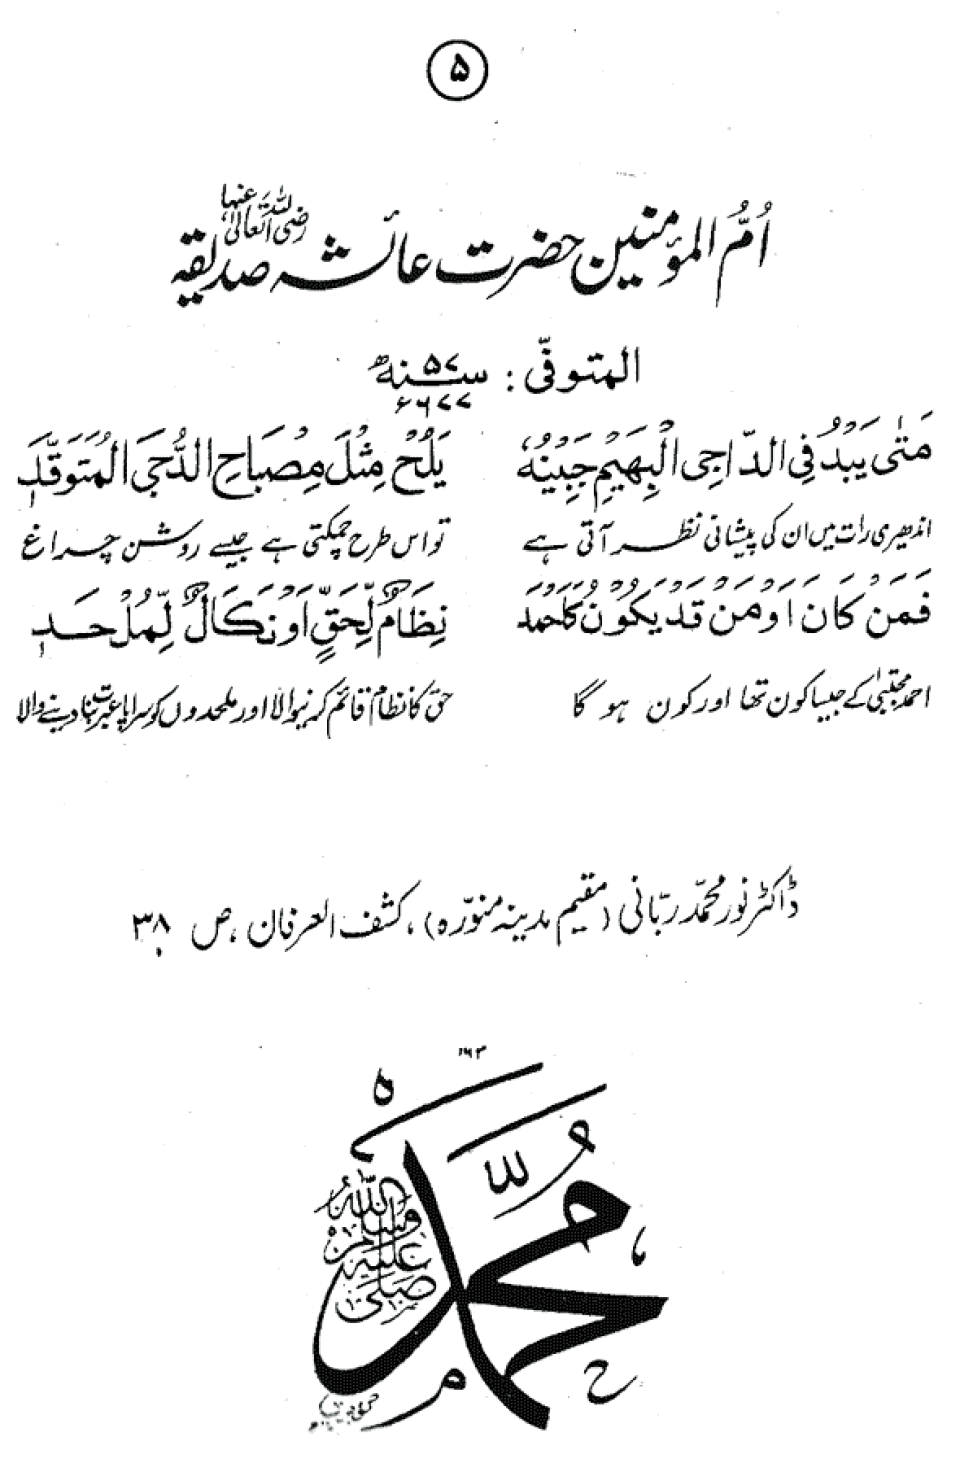 ۵
اُمُّ المؤمنین حضرت عائشہ صدیقہ رضی اللہ تعالیٰ عنہا
المتوفّی : سنہ ۵۷ھ
۶۶۷۷
مَتٰی یَبْدُ فِی الدَّاجِی الْبَهِیْمِ جَبِیْنُهٗ یَلُحْ مِثْلَ مِصْبَاحِ الدُّجَی الْمُتَوَقِّدِ
اندھیری رات میں ان کی پیشانی نظر آتی ہے تو اس طرح چمکتی ہے جیسے روشن چراغ
فَمَنْ كَانَ اَوْ مَنْ قَدْ یَكُوْنُ كَاَحْمَدَ نِظَامٌ لِّحَقٍّ اَوْ نَكَالٌ لِّمُلْحِدِ
احمد مجتبیٰ کے جیسا کون تھا اور کون ہو گا حق کا نظام قائم کرنیوالا اور ملحدوں کو سراپا عبرت بنا دینے والا
ڈاکٹر نور محمّد ربّانی (مقیم مدینہ منوّرہ)، کشف العرفان، ص ۳۸
۱۶۳
مُحَمَّد
صَلَّی اللّٰهُ عَلَیْهِ وَسَلَّمَ